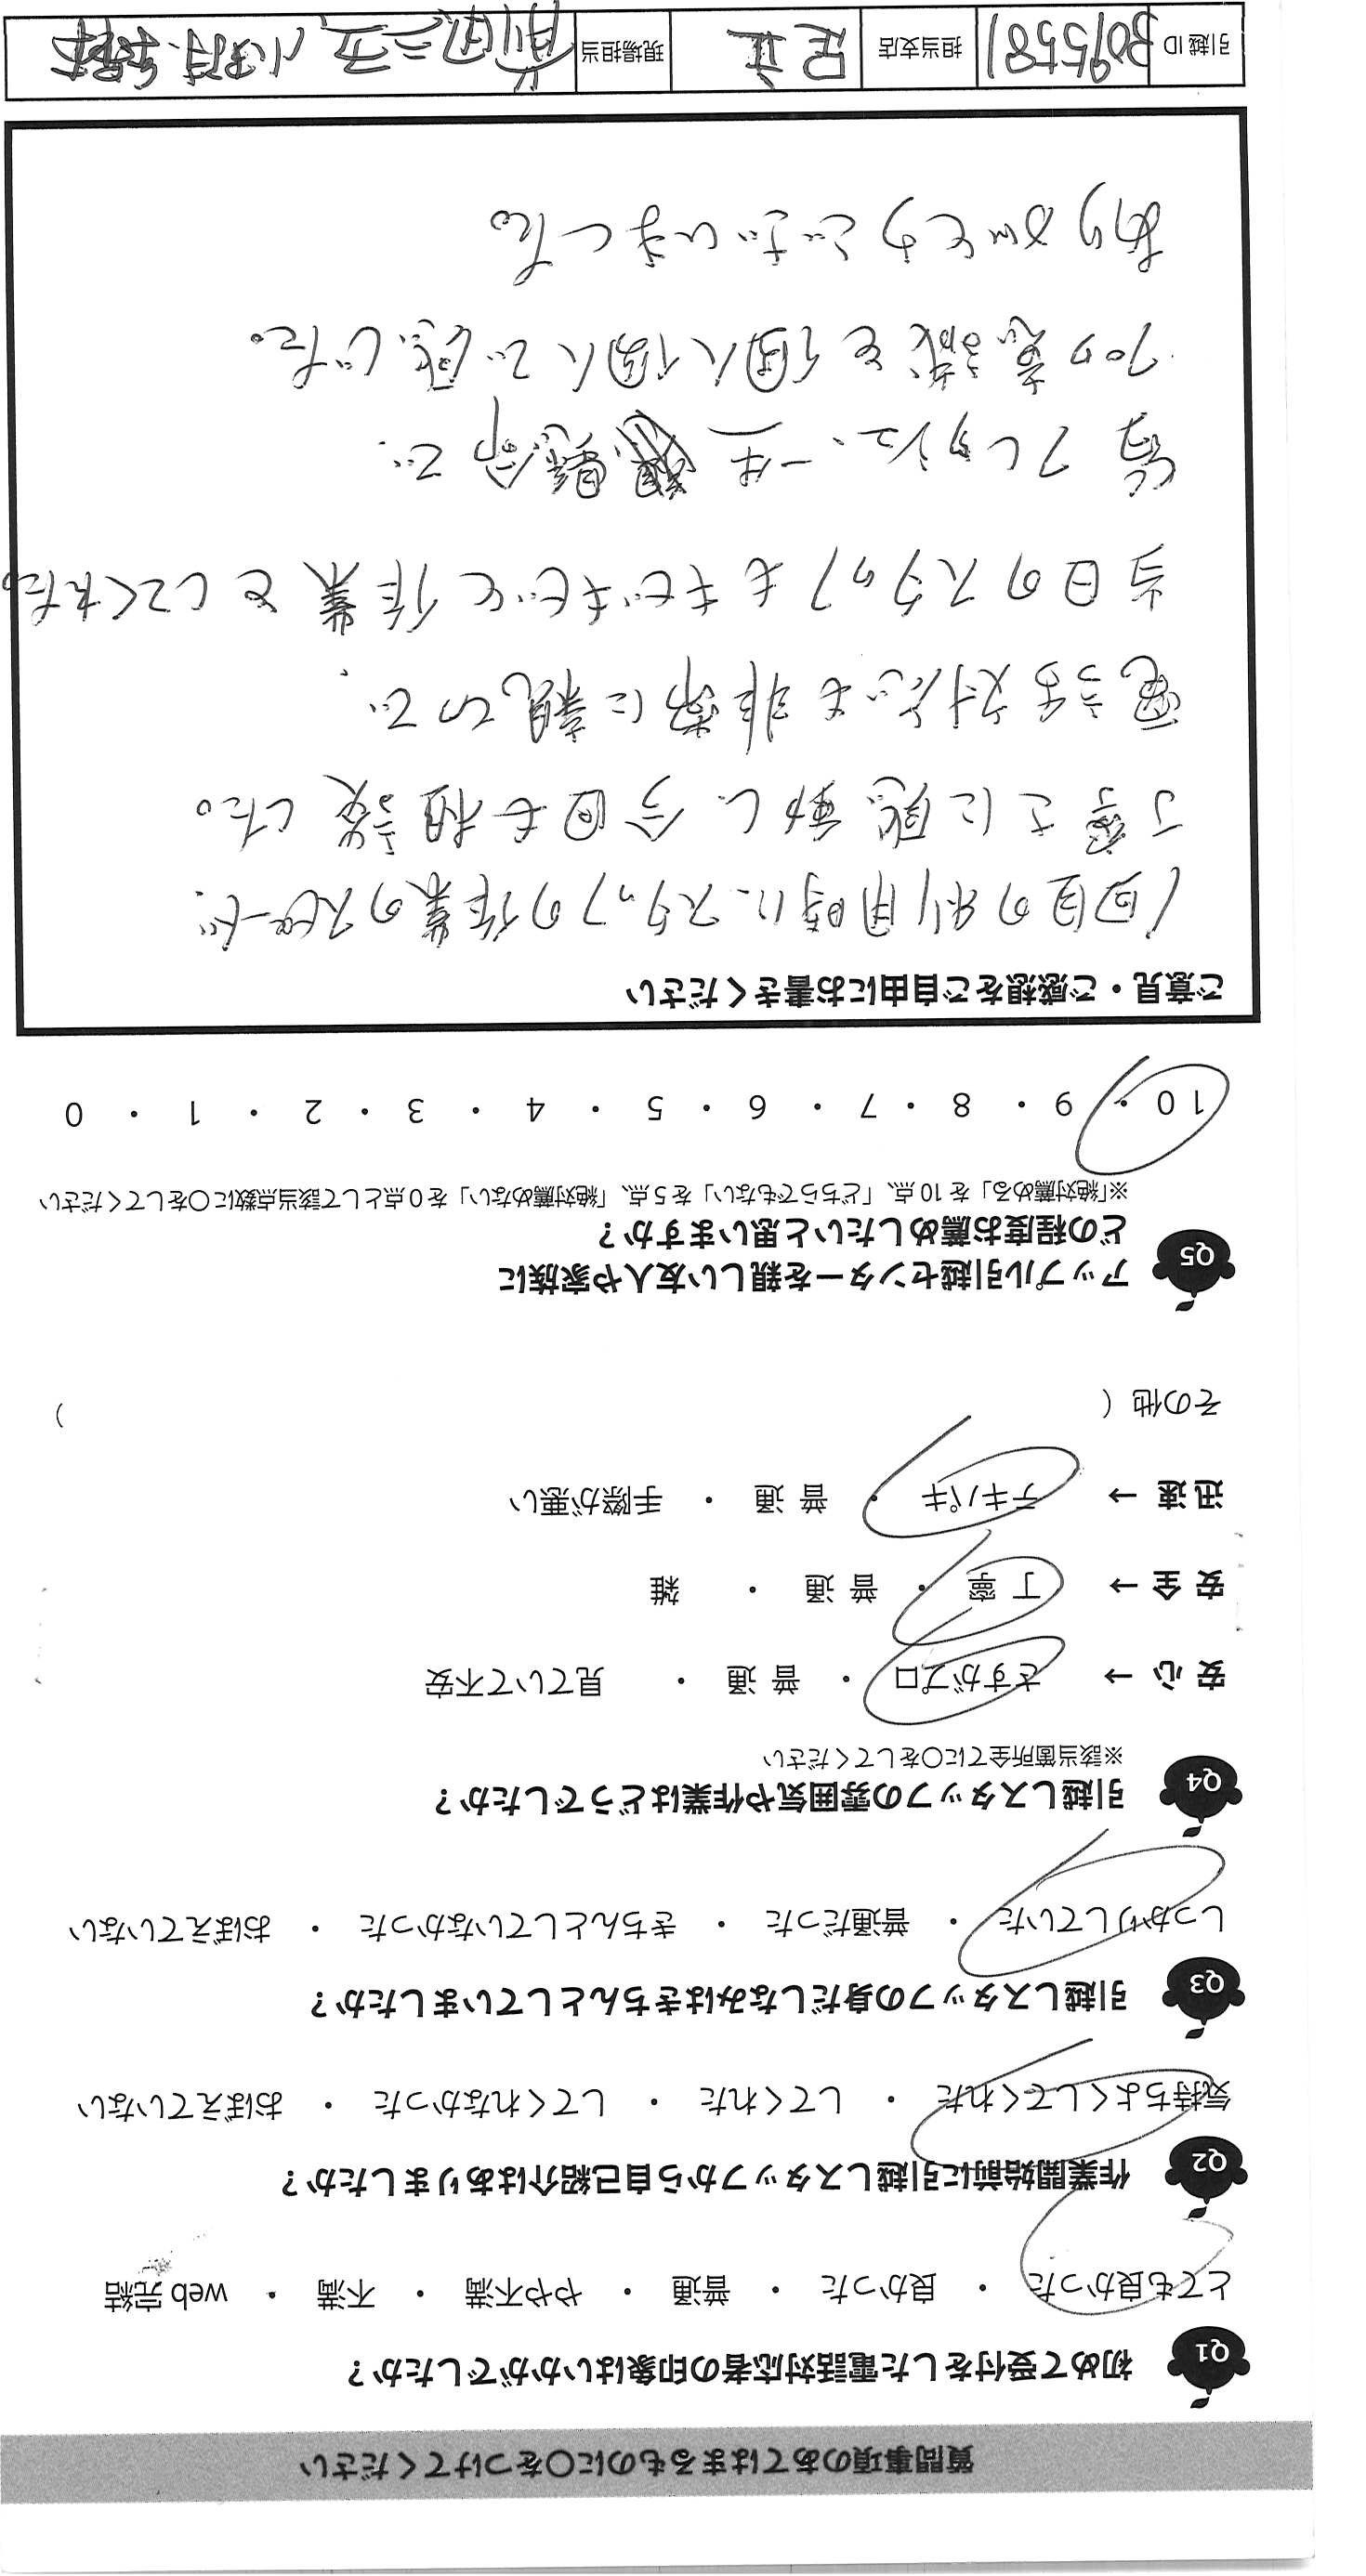 質問事項のあてはまるものに〇をつけてください
Q1 初めて受付をした電話対応者の印象はいかがでしたか？
とても良かった ・ 良かった ・ 普通 ・ やや不満 ・ 不満 ・ web 完結
Q2 作業開始前に引越しスタッフから自己紹介はありましたか？
気持ちよくしてくれた ・ してくれた ・ してくれなかった ・ おぼえていない
Q3 引越しスタッフの身だしなみはきちんとしていましたか？
しっかりしていた ・ 普通だった ・ きちんとしていなかった ・ おぼえていない
Q4 引越しスタッフの雰囲気や作業はどうでしたか？
※該当箇所全てに〇をしてください
安 心 → さすがプロ ・ 普 通 ・ 見ていて不安
安 全 → 丁 寧 ・ 普 通 ・ 雑
迅 速 → テキパキ ・ 普 通 ・ 手際が悪い
その他（ ）
Q5 アップル引越センターを親しい友人や家族に
どの程度お薦めしたいと思いますか？
※「絶対薦める」を 10 点、「どちらでもない」を 5 点、「絶対薦めない」を 0 点として該当点数に〇をしてください
10 ・ 9 ・ 8 ・ 7 ・ 6 ・ 5 ・ 4 ・ 3 ・ 2 ・ 1 ・ 0
ご意見・ご感想をご自由にお書きください
1回目の利用時に、スタッフの作業のスピード、
丁寧さに感動し、今回も相談した。
電話対応も非常に親切で、
当日のスタッフもキビキビと作業をしてくれた。
皆フレッシュ、一生懸命で、
プロ意識を個人個人で感じた。
ありがとうございました。
引越 ID 3095581 担当支店 足立 現場担当 前田